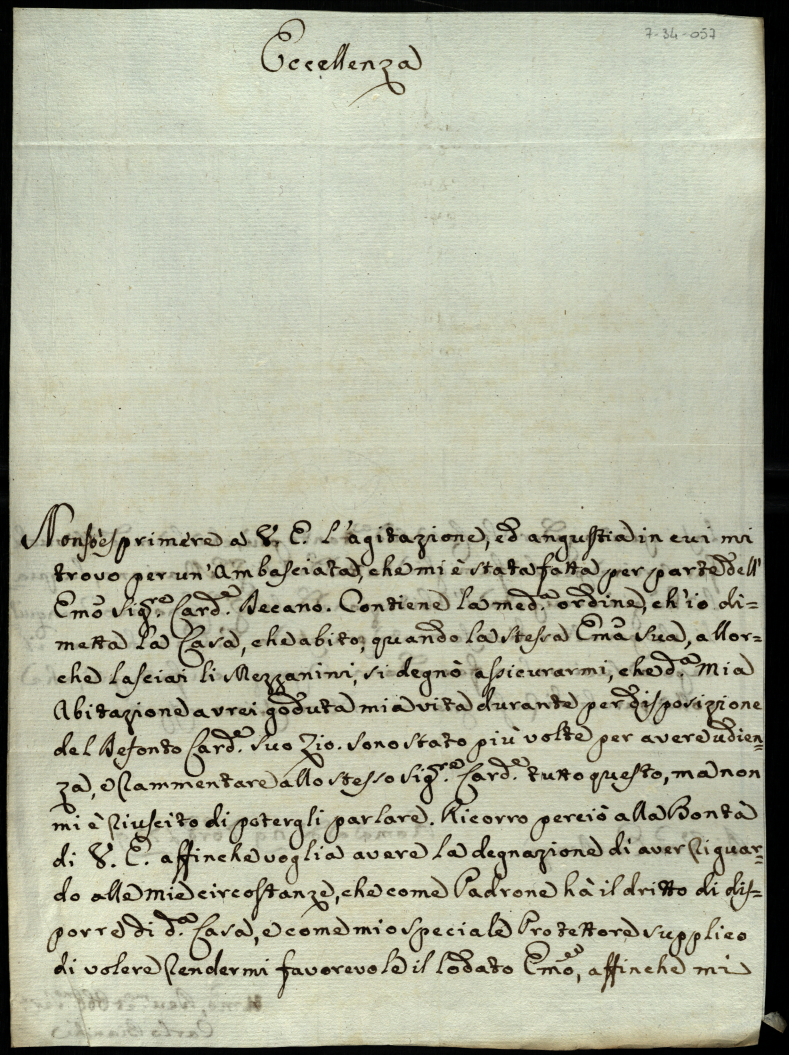 7-34-057
Eccellenza
Non sò esprimere a V. E. l'agitazione, ed angustia in cui mi
trovo per un' Ambasciata, che mi è stata fatta per parte dell'
Emõ Sig.re Card.e Decano. Contiene la med.a ordine, ch'io di=
metta la Casa, che abito, quando la stessa Emã Sua, allor=
che lasciai li Mezzanini, si degnò assicurarmi, che d.a Mia
Abitazione avrei goduta mia vita durante per disposizione
del Defonto Card.e Suo Zio. Sono stato più volte per avere udien=
za, e rammentare allo stesso Sig.re Card.e tutto questo, ma non
mi è riuscito di potergli parlare. Ricorro perciò alla Bontà
di V. E. affinche voglia avere la degnazione di aver riguar=
do alle mie circostanze, che come Padrone hà il dritto di dis=
porre di d.a Casa, e come mio speciale Protettore supplico
di volere rendermi favorevole il lodato Emõ, affinche mi